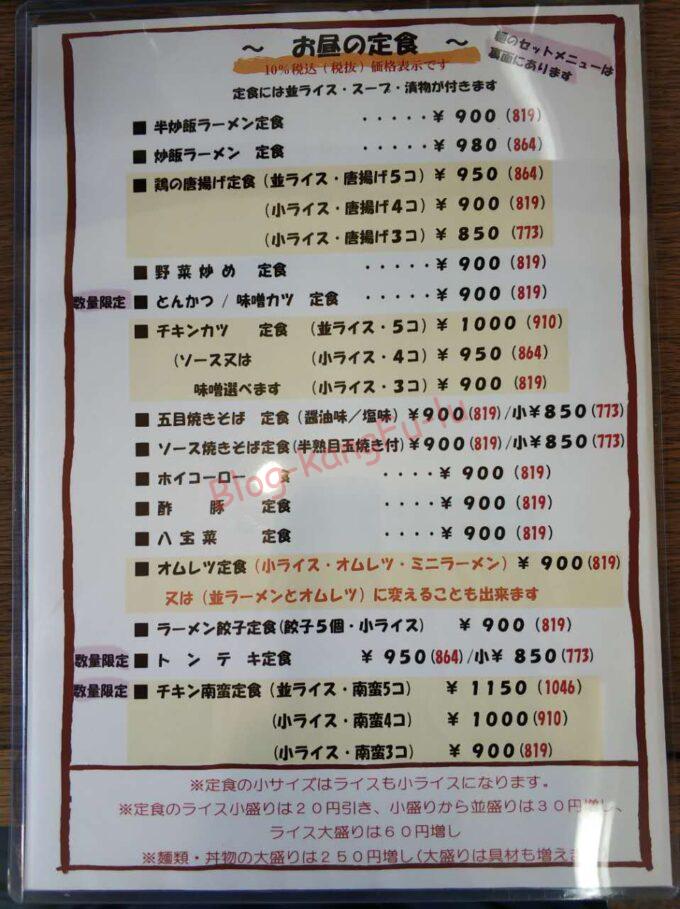 ～ お昼の定食 ～
麺のセットメニューは
裏面にあります
10%税込(税抜)価格表示です
定食には並ライス・スープ・漬物が付きます
■ 半炒飯ラーメン定食 ・・・・・¥ 900 (819)
■ 炒飯ラーメン 定食 ・・・・・¥ 980 (864)
■ 鶏の唐揚げ定食 (並ライス・唐揚げ5コ) ¥ 950 (864)
(小ライス・唐揚げ4コ) ¥ 900 (819)
(小ライス・唐揚げ3コ) ¥ 850 (773)
■ 野菜炒め 定食 ・・・・・¥ 900 (819)
数量限定 ■ とんかつ / 味噌カツ 定食 ・・・・・¥ 900 (819)
■ チキンカツ 定食 (並ライス・5コ) ¥ 1000 (910)
(ソース又は (小ライス・4コ) ¥ 950 (864)
味噌選べます (小ライス・3コ) ¥ 900 (819)
■ 五目焼きそば 定食 (醤油味／塩味) ¥900 (819) /小¥850 (773)
■ ソース焼きそば定食(半熟目玉焼き付) ¥900 (819) /小¥850 (773)
■ ホイコーロー 食 ・・・・¥ 900 (819)
■ 酢 豚 定食 ・・・・¥ 900 (819)
■ 八宝菜 定食 ・・・・¥ 900 (819)
■ オムレツ定食 (小ライス・オムレツ・ミニラーメン) ¥ 900 (819)
又は (並ラーメンとオムレツ) に変えることも出来ます
■ ラーメン餃子定食(餃子5個・小ライス) ¥ 900 (819)
数量限定 ■ トンテキ定食 ¥ 950 (864) /小¥ 850 (773)
数量限定 ■ チキン南蛮定食 (並ライス・南蛮5コ) ¥ 1150 (1046)
(小ライス・南蛮4コ) ¥ 1000 (910)
(小ライス・南蛮3コ) ¥ 900 (819)
※定食の小サイズはライスも小ライスになります。
※定食のライス小盛りは20円引き、小盛りから並盛りは30円増し、
ライス大盛りは60円増し
※麺類・丼物の大盛りは250円増し(大盛りは具材も増えま
Blog-KangFu-lu